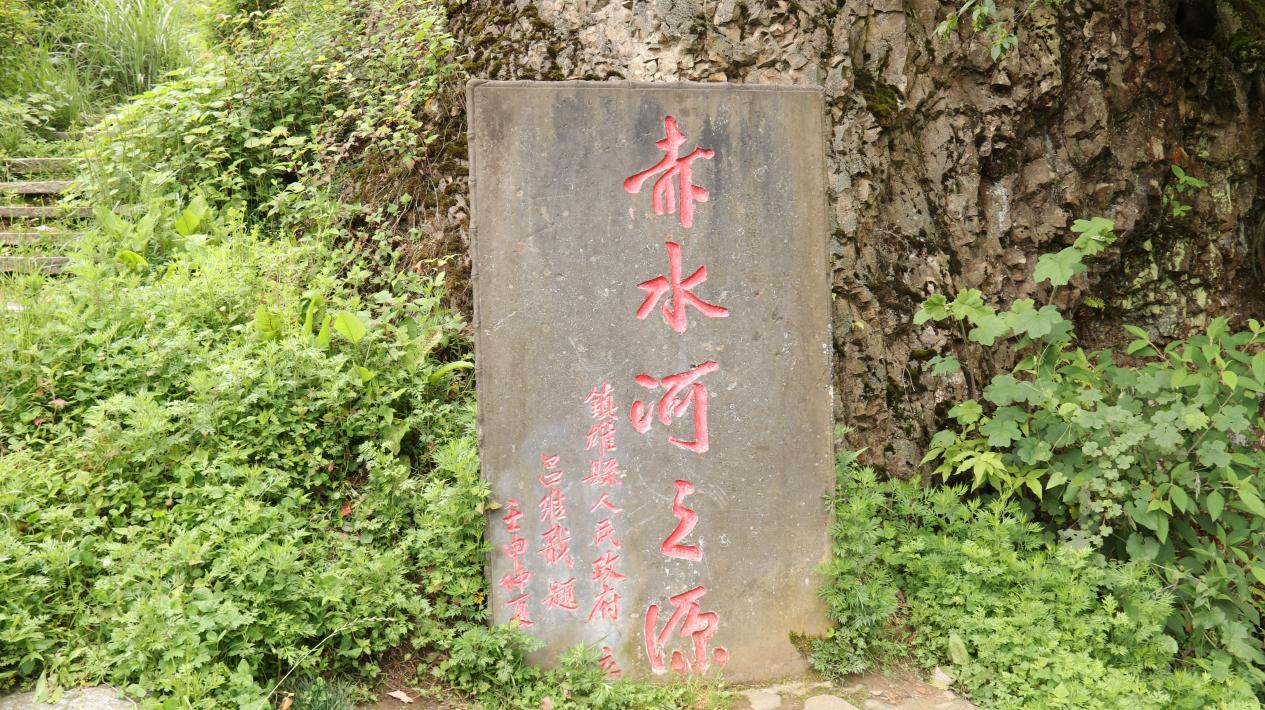 赤水河之源
鎮雄縣人民政府立
吕維戢題
壬申仲夏